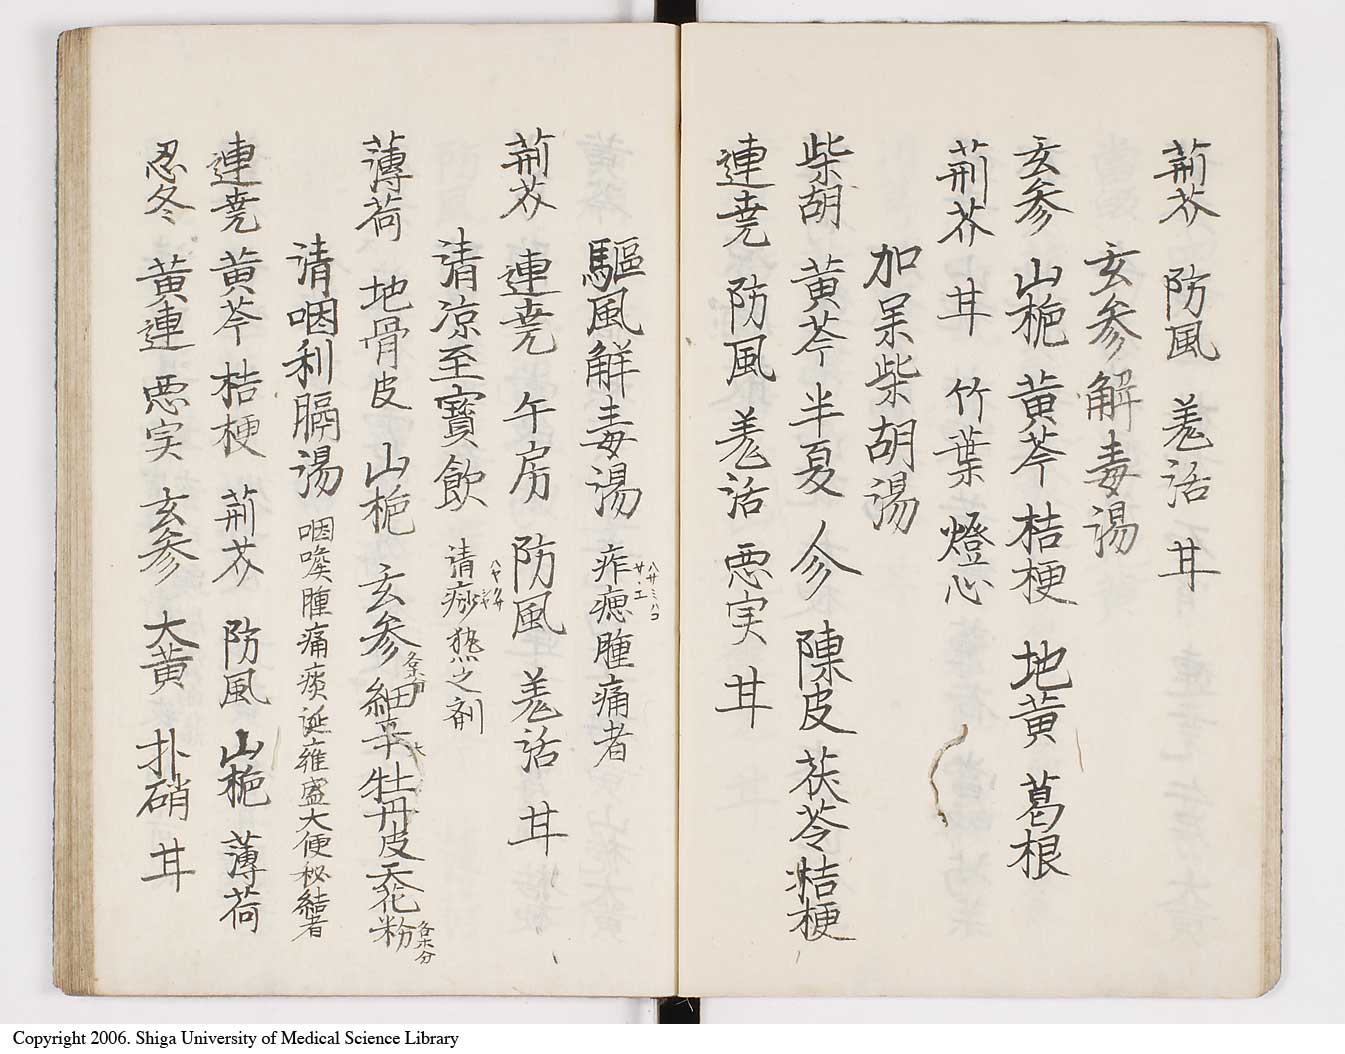 荊芥 防風 羗活 甘
玄参解毒湯
玄参 山梔 黄芩 桔梗 地黄 葛根
荊芥 甘 竹葉 燈心
加呆柴胡湯
柴胡 黄芩 半夏 人参 陳皮 茯苓 桔梗
連堯 防風 羗活 悪実 甘
驅風解毒湯 痄腮腫痛者
荊芥 連堯 午房 防風 羗活 甘
清凉至寳飲 請痧熱之剤
薄荷 地骨皮 山梔 玄参 細辛 牡丹皮 天花粉
清咽利膈湯 咽喉腫痛痰涎雍盛大便秘結者
連堯 黄芩 桔梗 荊芥 防風 山梔 薄荷
忍冬 黄連 悪実 玄参 大黄 朴硝 甘
Copyright 2006. Shiga University of Medical Science Library